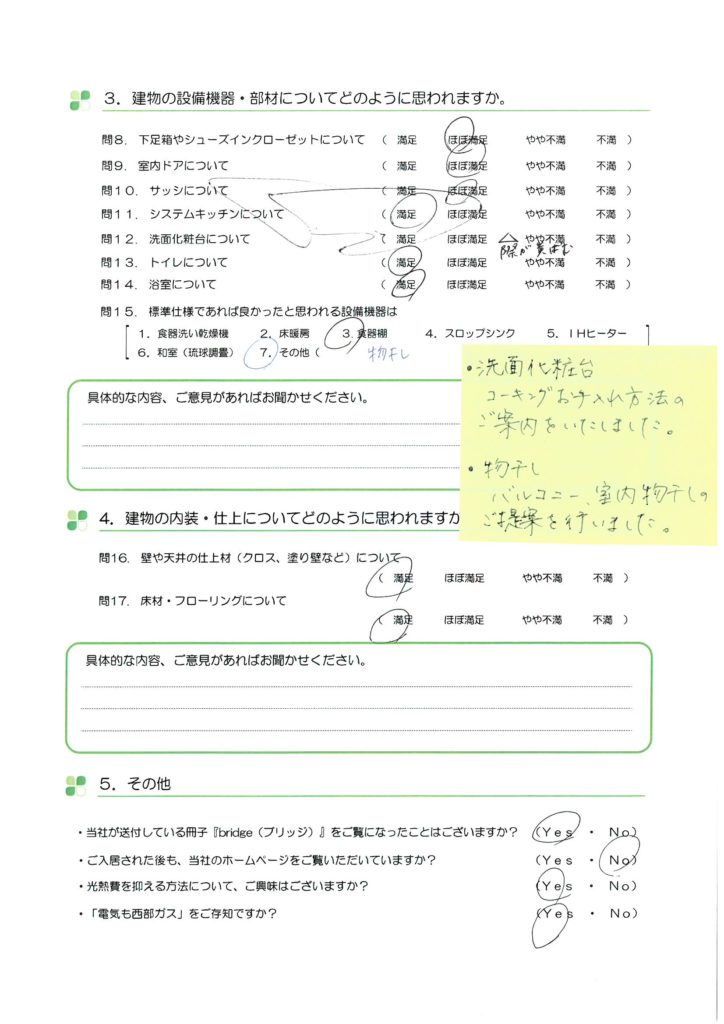 3. 建物の設備機器・部材についてどのように思われますか。
問8. 下足箱やシューズインクローゼットについて ( 満足 ほぼ満足 やや不満 不満 )
問9. 室内ドアについて ( 満足 ほぼ満足 やや不満 不満 )
問10. サッシについて ( 満足 ほぼ満足 やや不満 不満 )
問11. システムキッチンについて ( 満足 ほぼ満足 やや不満 不満 )
問12. 洗面化粧台について ( 満足 ほぼ満足 △ やや不満 不満 )
際が黄ばむ
問13. トイレについて ( 満足 ほぼ満足 やや不満 不満 )
問14. 浴室について ( 満足 ほぼ満足 やや不満 不満 )
問15. 標準仕様であれば良かったと思われる設備機器は
1. 食器洗い乾燥機 2. 床暖房 3. 食器棚 4. スロップシンク 5. IHヒーター
6. 和室(琉球調畳) 7. その他( 物干し
具体的な内容、ご意見があればお聞かせください。
・洗面化粧台
コーキングお手入れ方法の
ご案内をいたしました。
・物干し
バルコニー、室内物干しの
ご提案を行いました。
4. 建物の内装・仕上についてどのように思われますか
問16. 壁や天井の仕上材(クロス、塗り壁など)について
( 満足 ほぼ満足 やや不満 不満 )
問17. 床材・フローリングについて
( 満足 ほぼ満足 やや不満 不満 )
具体的な内容、ご意見があればお聞かせください。
5. その他
・当社が送付している冊子『bridge(ブリッジ)』をご覧になったことはございますか? (Yes ・ No)
・ご入居された後も、当社のホームページをご覧いただいていますか? (Yes ・ No)
・光熱費を抑える方法について、ご興味はございますか? (Yes ・ No)
・「電気も西部ガス」をご存知ですか? (Yes ・ No)